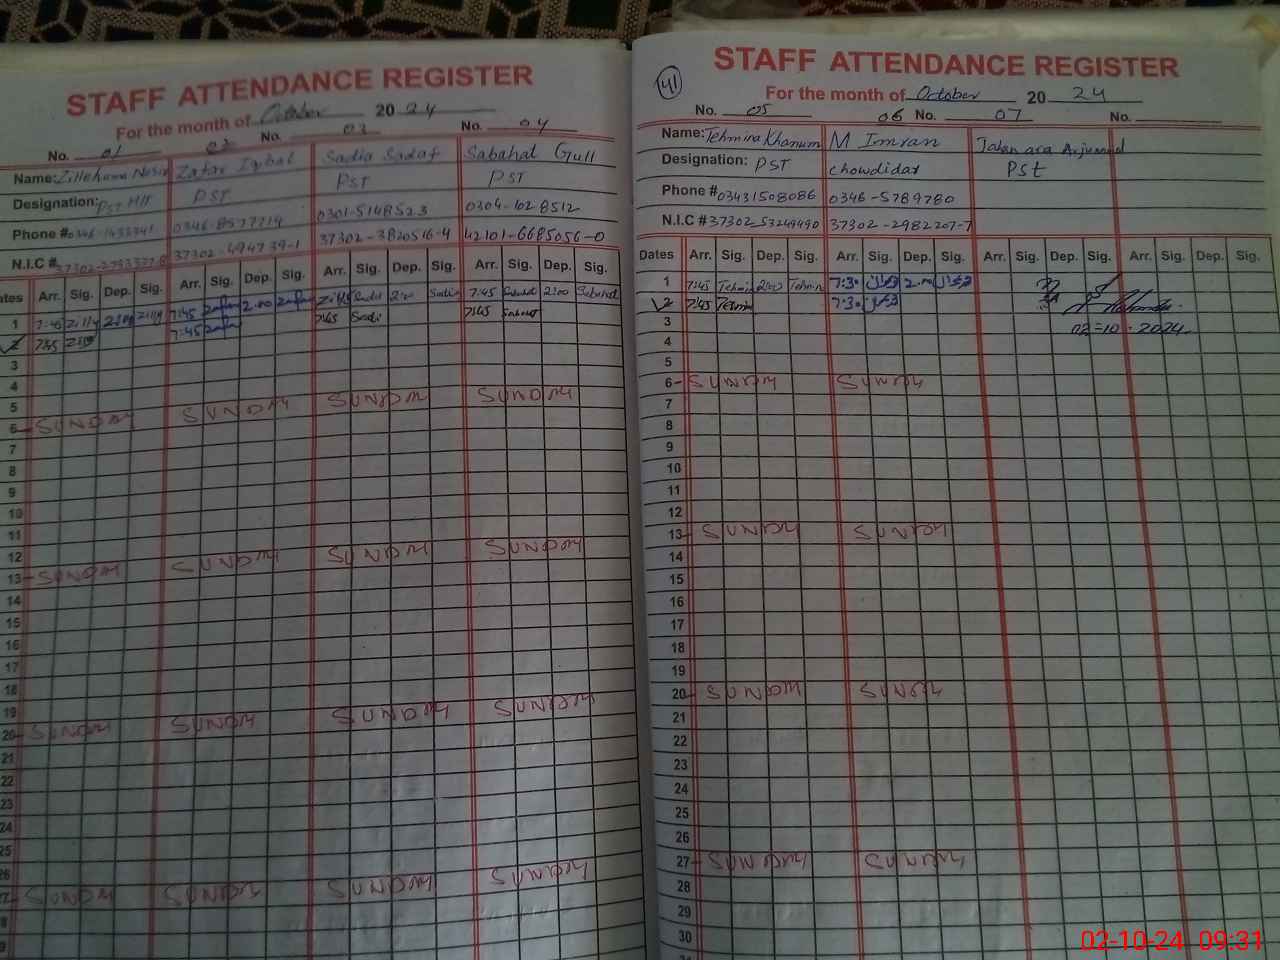 STAFF ATTENDANCE REGISTER
For the month of October 2024
No. 01 02 No. 03 No. 04
Name: Zillehuma Zafar Iqbal Sadia Sadaf Sabahat Gull
Designation: PST PST PST PST
Phone # 0301-5148523 0304-1028512
N.I.C # 37302-3820516-4 42101-6685056-0
Dates Arr. Sig. Dep. Sig. Arr. Sig. Dep. Sig. Arr. Sig. Dep. Sig. Arr. Sig. Dep. Sig.
1 7:40 Zilly Zilly 7:45 Zafar 2:00 Zafar Sadia 2:00 Sadia 7:45 Sabahat 2:00 Sabahat
2 7:45 Zilly 7:45 Zafar 7:45 Sadia 7:45 Sabahat
3
4
5
6 SUNDAY SUNDAY SUNDAY SUNDAY
7
8
9
10
11
12
13 SUNDAY SUNDAY SUNDAY SUNDAY
14
15
16
17
18
19
20 SUNDAY SUNDAY SUNDAY SUNDAY
21
22
23
24
25
26
27 SUNDAY SUNDAY SUNDAY SUNDAY
28
29
STAFF ATTENDANCE REGISTER
41
For the month of October 2024
No. 05 06 No. 07 No.
Name: Tehmina Khanum M Imran Jahan ara Arjumand
Designation: PST Chowdidar PSt
Phone # 03431508086 0346-5789780
N.I.C # 37302-53249490 37302-2982207-7
Dates Arr. Sig. Dep. Sig. Arr. Sig. Dep. Sig. Arr. Sig. Dep. Sig. Arr. Sig. Dep. Sig.
1 7:45 Tehmin 2:00 Tehmin 7:30 2:00
2 7:45 Tehmin 7:30
3 02-10-2024
4
5
6 SUNDAY SUNDAY
7
8
9
10
11
12
13 SUNDAY SUNDAY
14
15
16
17
18
19
20 SUNDAY SUNDAY
21
22
23
24
25
26
27 SUNDAY SUNDAY
28
29
30
02-10-24 09:31